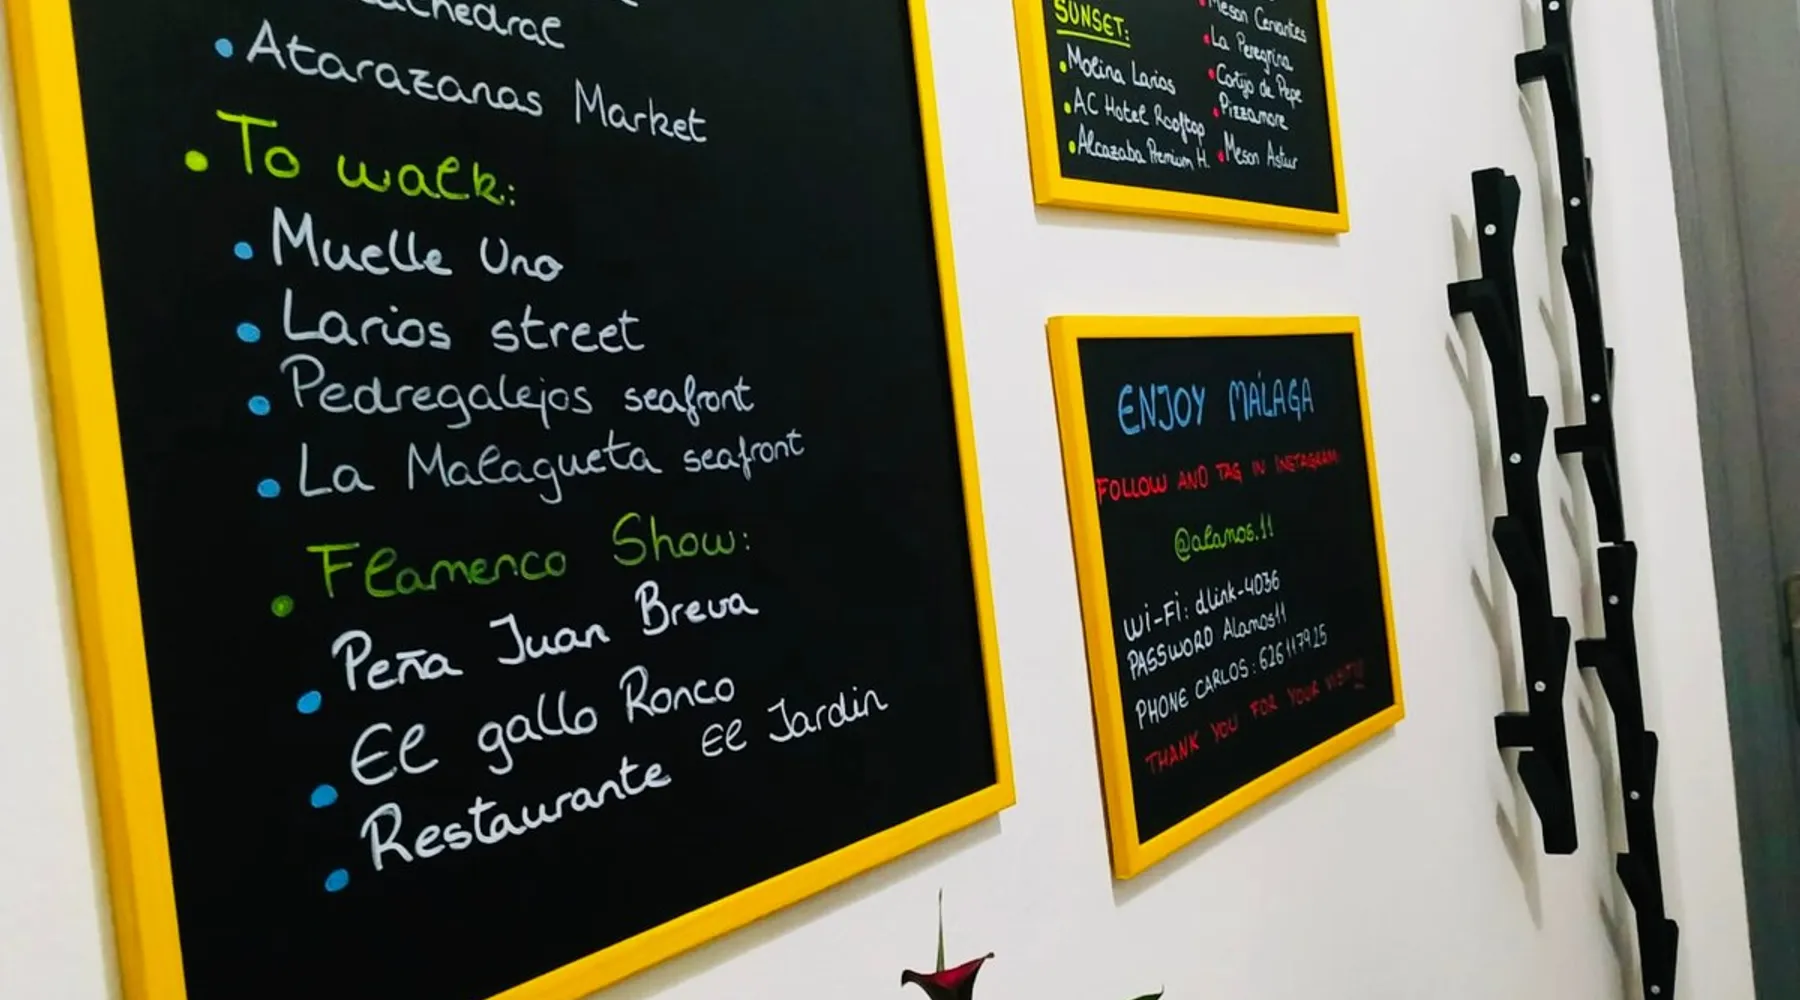 Cathedral
• Atarazanas Market
• To walk:
• Muelle Uno
• Larios street
• Pedregalejos seafront
• La Malagueta seafront
• Flamenco Show:
• Peña Juan Breva
• El gallo Ronco
• Restaurante El Jardin
SUNSET:
• Molina Larios
• AC Hotel Rooftop
• Alcazaba Premium H.
• Meson Cervantes
• La Peregrina
• Cortijo de Pepe
• Pizzamore
• Meson Astur
ENJOY MÁLAGA
FOLLOW AND TAG IN INSTAGRAM:
@alamos.11
Wi-Fi: dlink-4D36
PASSWORD Alamos11
PHONE CARLOS: 626117925
THANK YOU FOR YOUR VISIT!!